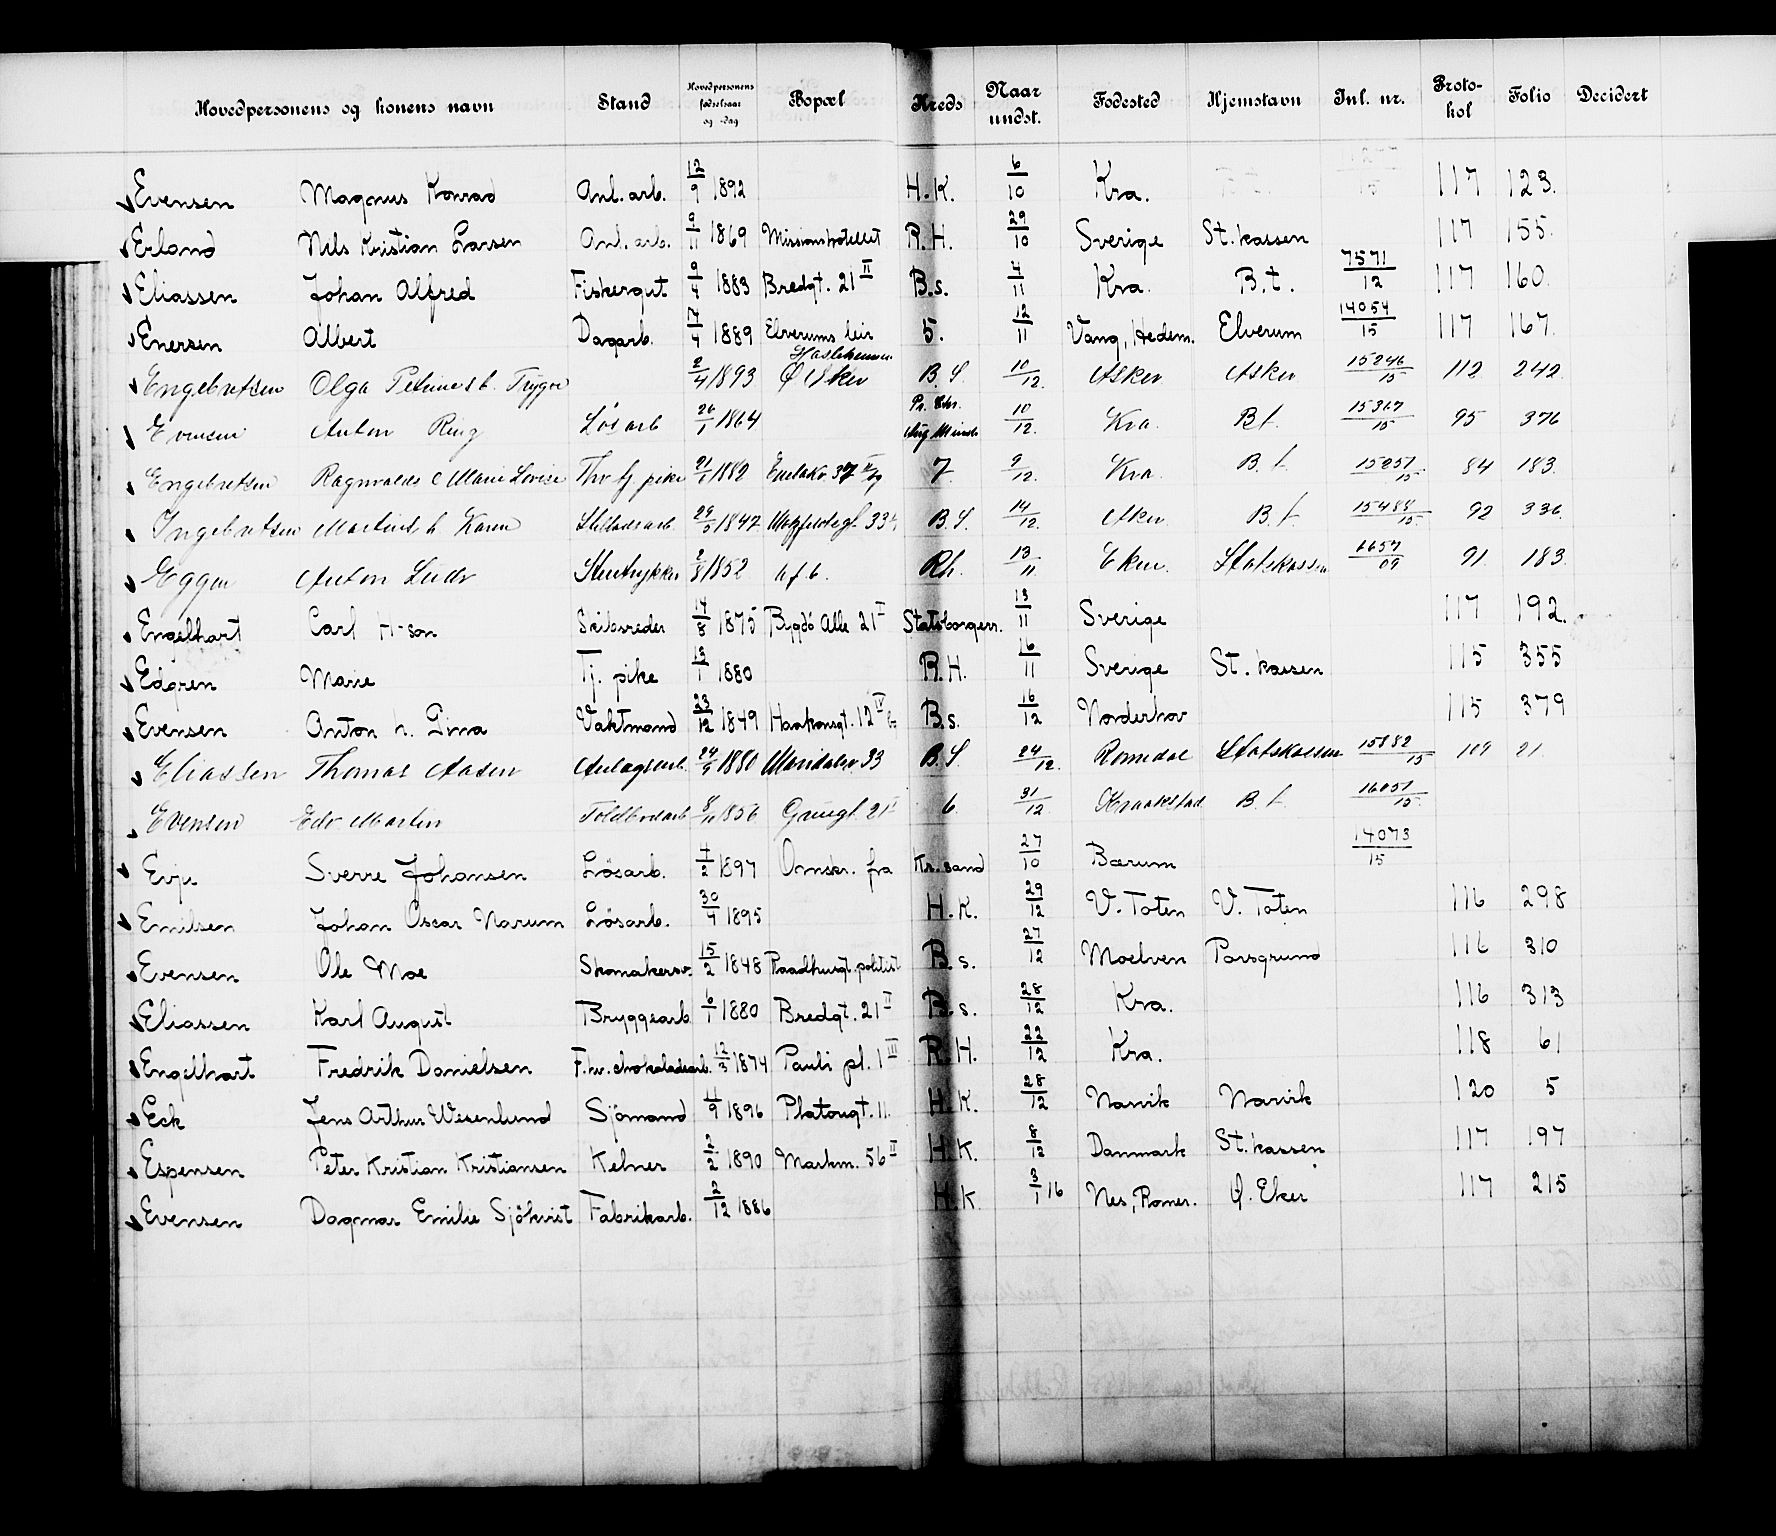 Hovedpersonens og konens navn Stand Hovedpersonens fødselsaar og -dag Bopæl Kreds Naar undst. Fødested Hjemstavn Jnl. nr. Protokol Folio Decidert
Evensen Magnus Konrad Anl. arb. 12/9 1892 H.K. 6/10 Kra. 117 123.
Erland Nils Kristian Larsen Anl. arb. 9/11 1869 Missionshotellet R.H. 29/10 Sverige St. kassen 117 155.
Eliassen Johan Alfred Fiskergut 9/4 1883 Bredgt. 21 II B.s. 4/11 Kra. B.t. 7571/12 117 160.
Enersen Albert Dagarb. 17/4 1889 Elverums leir 5. 12/11 Vang, Hedem. Elverum 14054/15 117 167.
Engebretsen Olga Trygve 2/4 1893 Ø Eker B.S. 10/12. Asker Asker 15246/15 112 242.
Evensen Anton Ring Løsarb 26/1 1864 10/12. Kra. B.t. 15367/15 95 376
Engebretsen Ragnvalda Marie Lovise Thv tj. pike 21/1 1882 7. 9/12. Kra. B.t. 84 183.
Ingebretsen Karen 29/5 1847 33 B.S. 14/12. Aker B.t. 15488/15. 92 336.
Egger Anton Ludv Stentrykker 2/8 1852 h.f.b. Rh. 13/11 Eker Statskassen 1657/09 91. 183.
Engelhart Carl H-son Skibsreder 14/8 1875 Bygdö Alle 21 I Statsborgerr. 13/11 Sverige 117 192.
Edgren Marie Tj. pike 13/1 1880 R.H. 16/11 Sverige St. kassen 115 355
Evensen Anton h. Gina Vaktmand 23/12 1849 Haakonsgt. 12 IV B.s. 16/12 Norderhov 115 379
Eliassen Thomas Aasen Anlagsarb. 24/9 1880 Maridalsv 33 B.S. 24/12. Romedal Statskassen 15882/15 109 21.
Evensen Edv Martin Toldbodarb 8/11 1856 21 6. 31/12 Kraakstad B.t. 16051/15.
Evju Sverre Johansen Lösarb. 4/2 1897 Omskr. fra Kr. sand 27/10 Bærum 14073/15
Emilsen Johan Oscar Narum Lösarb. 30/4 1895 H.K. 29/12 V. Toten V. Toten 116 298
Evensen Ole Moe Skomakersv. 15/2 1848 Raadhusgt. politist B.s. 27/12 Moelven Porsgrund 116 310
Eliassen Karl August Bryggearb. 6/1 1880 Bredgt. 21 II B.s. 28/12 Kra. 116 313
Engelhart Fredrik Danielsen F. hv. chokoladearb. 12/3 1874 Pauli pl. 1 III R.H. 22/12 Kra. 118 61
Eck Jens Arthur Wesenlund Sjömand 4/9 1896 Platougt. 11. H.K. 28/12 Narvik Narvik 120 5
Espensen Peter Kristian Kristiansen Kelner 2/2 1890 Markvn. 56 II H.K. 8/12 Danmark St. kassen 117 197
Evensen Dagmar Emilie Sjökvist Fabrikarb. 2/12 1886 H.K. 3/1 16 Nes, Romer. Ø. Eker 117 215